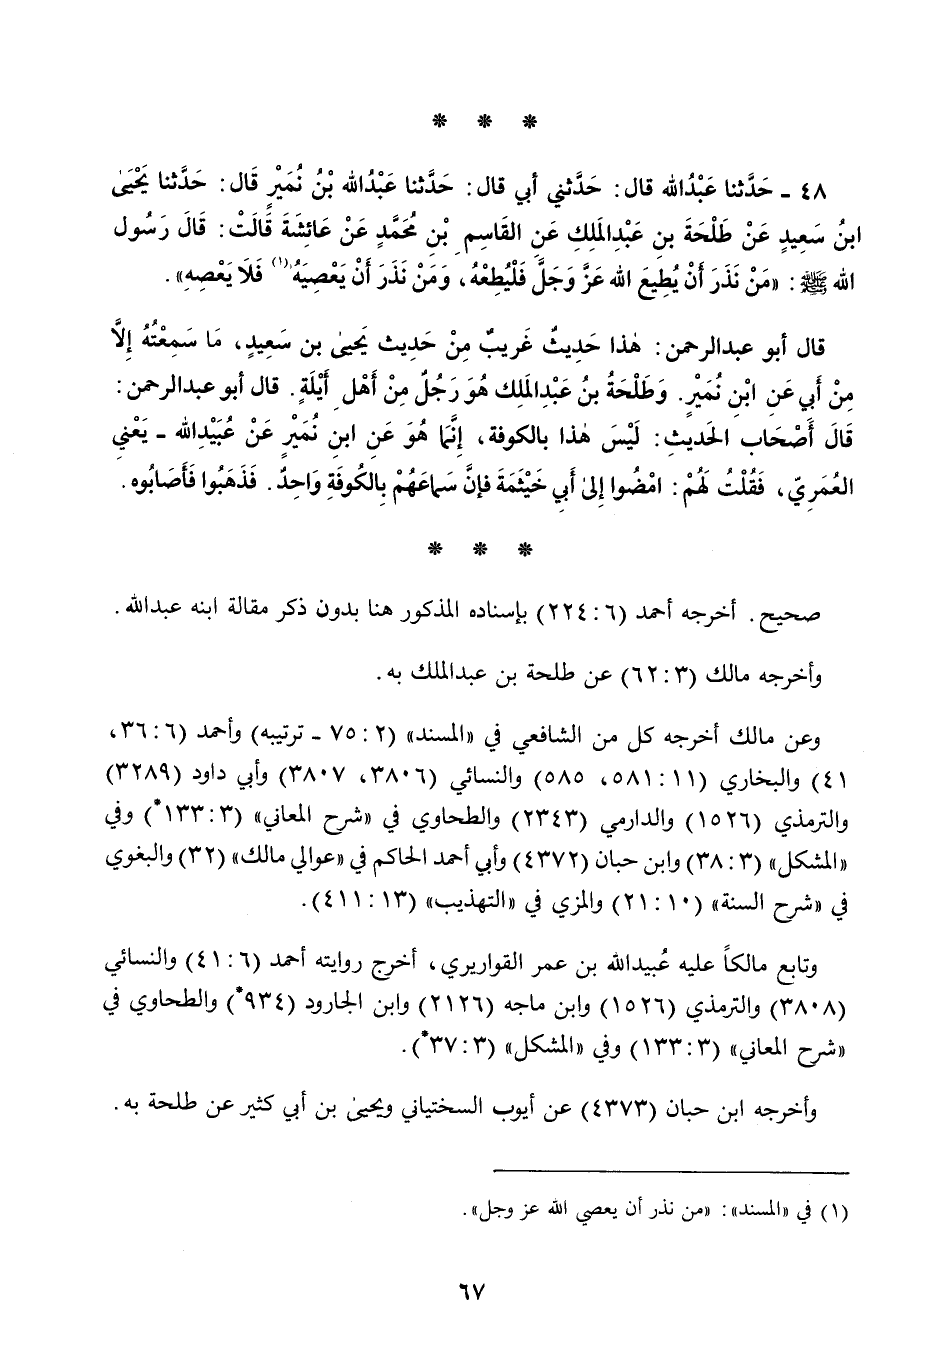 * * *
٤٨ ـ حَدَّثنا عَبْدُالله قال: حَدَّثني أبي قال: حَدَّثنا عَبْدُالله بْنُ نُمَيْرٍ قَال: حَدَّثنا يَحْيَىٰ
ابنُ سَعِيدٍ عَنْ طَلْحَةَ بنِ عَبْدِالمَلِك عَنِ القَاسِمِ بْنِ مُحَمَّدٍ عَنْ عائِشَةَ قَالَتْ: قَالَ رَسُول
الله ﷺ: «مَنْ نَذَرَ أَنْ يُطِيعَ الله عَزَّ وَجَلَّ فَلْيُطِعْهُ، وَمَنْ نَذَرَ أَنْ يَعْصِيَهُ(١) فَلَا يَعْصِهِ».
قال أبو عبدالرحمن: هٰذا حَدِيثٌ غَرِيبٌ مِنْ حَدِيث يَحيىٰ بن سَعِيدٍ، مَا سَمِعْتُهُ إلاَّ
مِنْ أَبي عَنِ ابْنِ نُمَيْرٍ. وَطَلْحَةُ بنُ عَبْدِالمَلك هُوَ رَجُلٌ مِنْ أَهْلِ أَيْلَةٍ. قال أبو عبدالرحمن:
قَالَ أَصْحَاب الحَديثِ: لَيْسَ هٰذا بالكوفة، إنَّمَا هُوَ عَن ابنِ نُمَيْرٍ عَنْ عُبَيْدِالله ـ يَعْني
العُمَرِيّ، فَقُلْتُ لَهُمْ: امْضُوا إلىٰ أَبي خَيْثَمَةَ فإنَّ سَماعَهُمْ بِالكُوفَةِ وَاحِدٌ. فَذَهَبُوا فَأَصَابُوه.
* * *
صحيح. أخرجه أحمد (٦: ٢٢٤) بإسناده المذكور هنا بدون ذكر مقالة ابنه عبدالله.
وأخرجه مالك (٣: ٦٢) عن طلحة بن عبدالملك به.
وعن مالك أخرجه كل من الشافعي في «المسند» (٢: ٧٥ ـ ترتيبه) وأحمد (٦: ٣٦،
٤١) والبخاري (١١: ٥٨١، ٥٨٥) والنسائي (٣٨٠٦، ٣٨٠٧) وأبي داود (٣٢٨٩)
والترمذي (١٥٢٦) والدارمي (٢٣٤٣) والطحاوي في «شرح المعاني» (٣: ١٣٣*) وفي
«المشكل» (٣: ٣٨) وابن حبان (٤٣٧٢) وأبي أحمد الحاكم في «عوالي مالك» (٣٢) والبغوي
في «شرح السنة» (١٠: ٢١) والمزي في «التهذيب» (١٣: ٤١١).
وتابع مالكاً عليه عُبيدالله بن عمر القواريري، أخرج روايته أحمد (٦: ٤١) والنسائي
(٣٨٠٨) والترمذي (١٥٢٦) وابن ماجه (٢١٢٦) وابن الجارود (٩٣٤*) والطحاوي في
«شرح المعاني» (٣: ١٣٣) وفي «المشكل» (٣: ٣٧*).
وأخرجه ابن حبان (٤٣٧٣) عن أيوب السختياني ويحيىٰ بن أبي كثير عن طلحة به.
(١) في «المسند»: «من نذر أن يعصي الله عز وجل».
٦٧